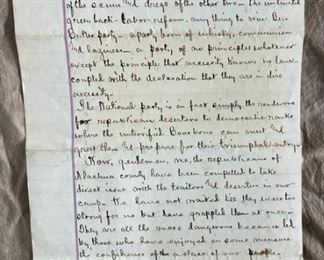 of the scum and dregs of the other two — The united
green back - Labor - reform, any thing to win Ben
Butler party — a party born of whisky, communism
and laziness — a party of no principles whatever
except the principle that necessity knows no law
coupled with the declaration that they are in dire
necessity.
The National party is in fact simply the rendezvous
for republican deserters to democratic ranks
where the unterrified Bourbons can meet and
greet them and prepare for their triumphal entry.
Now, gentlemen, we, the republicans of
Alachua county have been compelled to take
direct issue with the traitors and deserters in our
camp. We have not waited till they were too
strong for us but have grappled them at once.
They are all the more dangerous because led
by those who have enjoyed in some measure
the confidence of a class of our people.